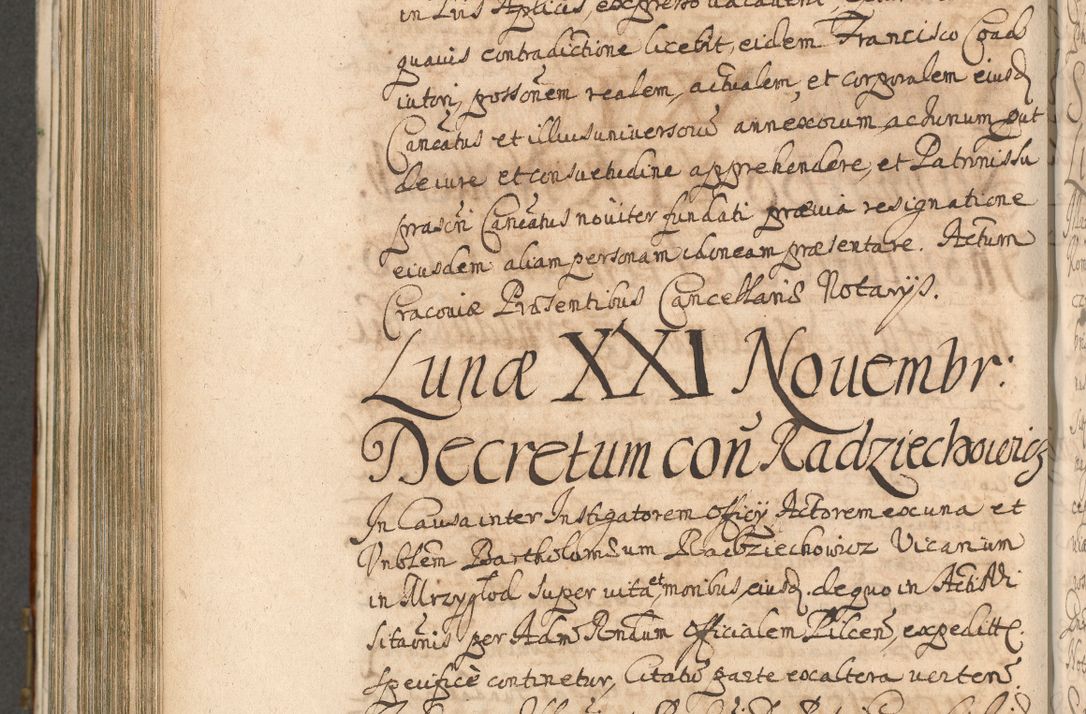 quauis contradictione licebit, eidem Francisco Coad
iutori, possoñem realem, actualem, et corporalem eiusd
Cancatus et illius uniuersorũ annexorum ac lunum put
de iure et consuetudine apprehendere, et Patronis su
præscri Cancatus nouiter fundati præuia resignatione
eiusdem aliam personam idoneam præsentare. Actum
Cracouiæ Præsentibus Cancellariæ Notarijs.
Lunæ XXI Nouembr:
Decretum coñ Radziechowicz
In Causa inter Instigatorem Officij Actorem ex una et
Vnblem Bartholomæum Radziechowicz Vicarium
in Mrzygłod super vita et moribus eiusd. de quo in Actis
sitaonis per Adm Rndum Officialem Pilcen expeditt.
specifice continetur, Citatũ parte ex altera verten